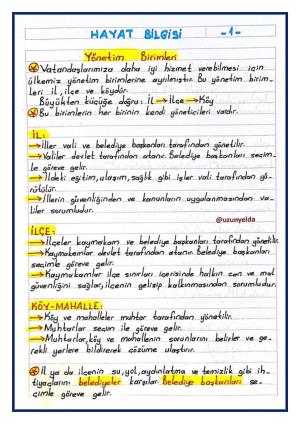 HAYAT BİLGİSİ -1-
Yönetim Birimleri
Vatandaşlarımıza daha iyi hizmet verebilmesi için
ülkemiz yönetim birimlerine ayrılmıştır. Bu yönetim birim-
leri il, ilçe ve köydür.
Büyükten küçüğe doğru: İL → İlçe → Köy
Bu birimlerin her birinin kendi yöneticileri vardır.
İL:
→ İller vali ve belediye başkanları tarafından yönetilir.
→ Valiler devlet tarafından atanır. Belediye başkanları seçim-
le göreve gelir.
→ İldeki eğitim, ulaşım, sağlık gibi işler vali tarafından yü-
rütülür.
→ İllerin güvenliğinden ve kanunların uygulanmasından va-
liler sorumludur.
@uzunyelda
İLÇE:
→ İlçeler kaymakam ve belediye başkanları tarafından yönetilir.
→ Kaymakamlar devlet tarafından atanır. Belediye başkanları
seçimle göreve gelir.
→ Kaymakamlar ilçe sınırları içerisinde halkın can ve mal
güvenliğini sağlar, ilçenin gelişip kalkınmasından sorumludur.
KÖY-MAHALLE:
→ Köy ve mahalleler muhtar tarafından yönetilir.
→ Muhtarlar seçim ile göreve gelir.
→ Muhtarlar, köy ve mahallenin sorunlarını belirler ve ge-
rekli yerlere bildirerek çözüme ulaştırır.
İl ya da ilçenin su, yol, aydınlatma ve temizlik gibi ih-
tiyaçlarını belediyeler karşılar. Belediye başkanları se-
çimle göreve gelir.